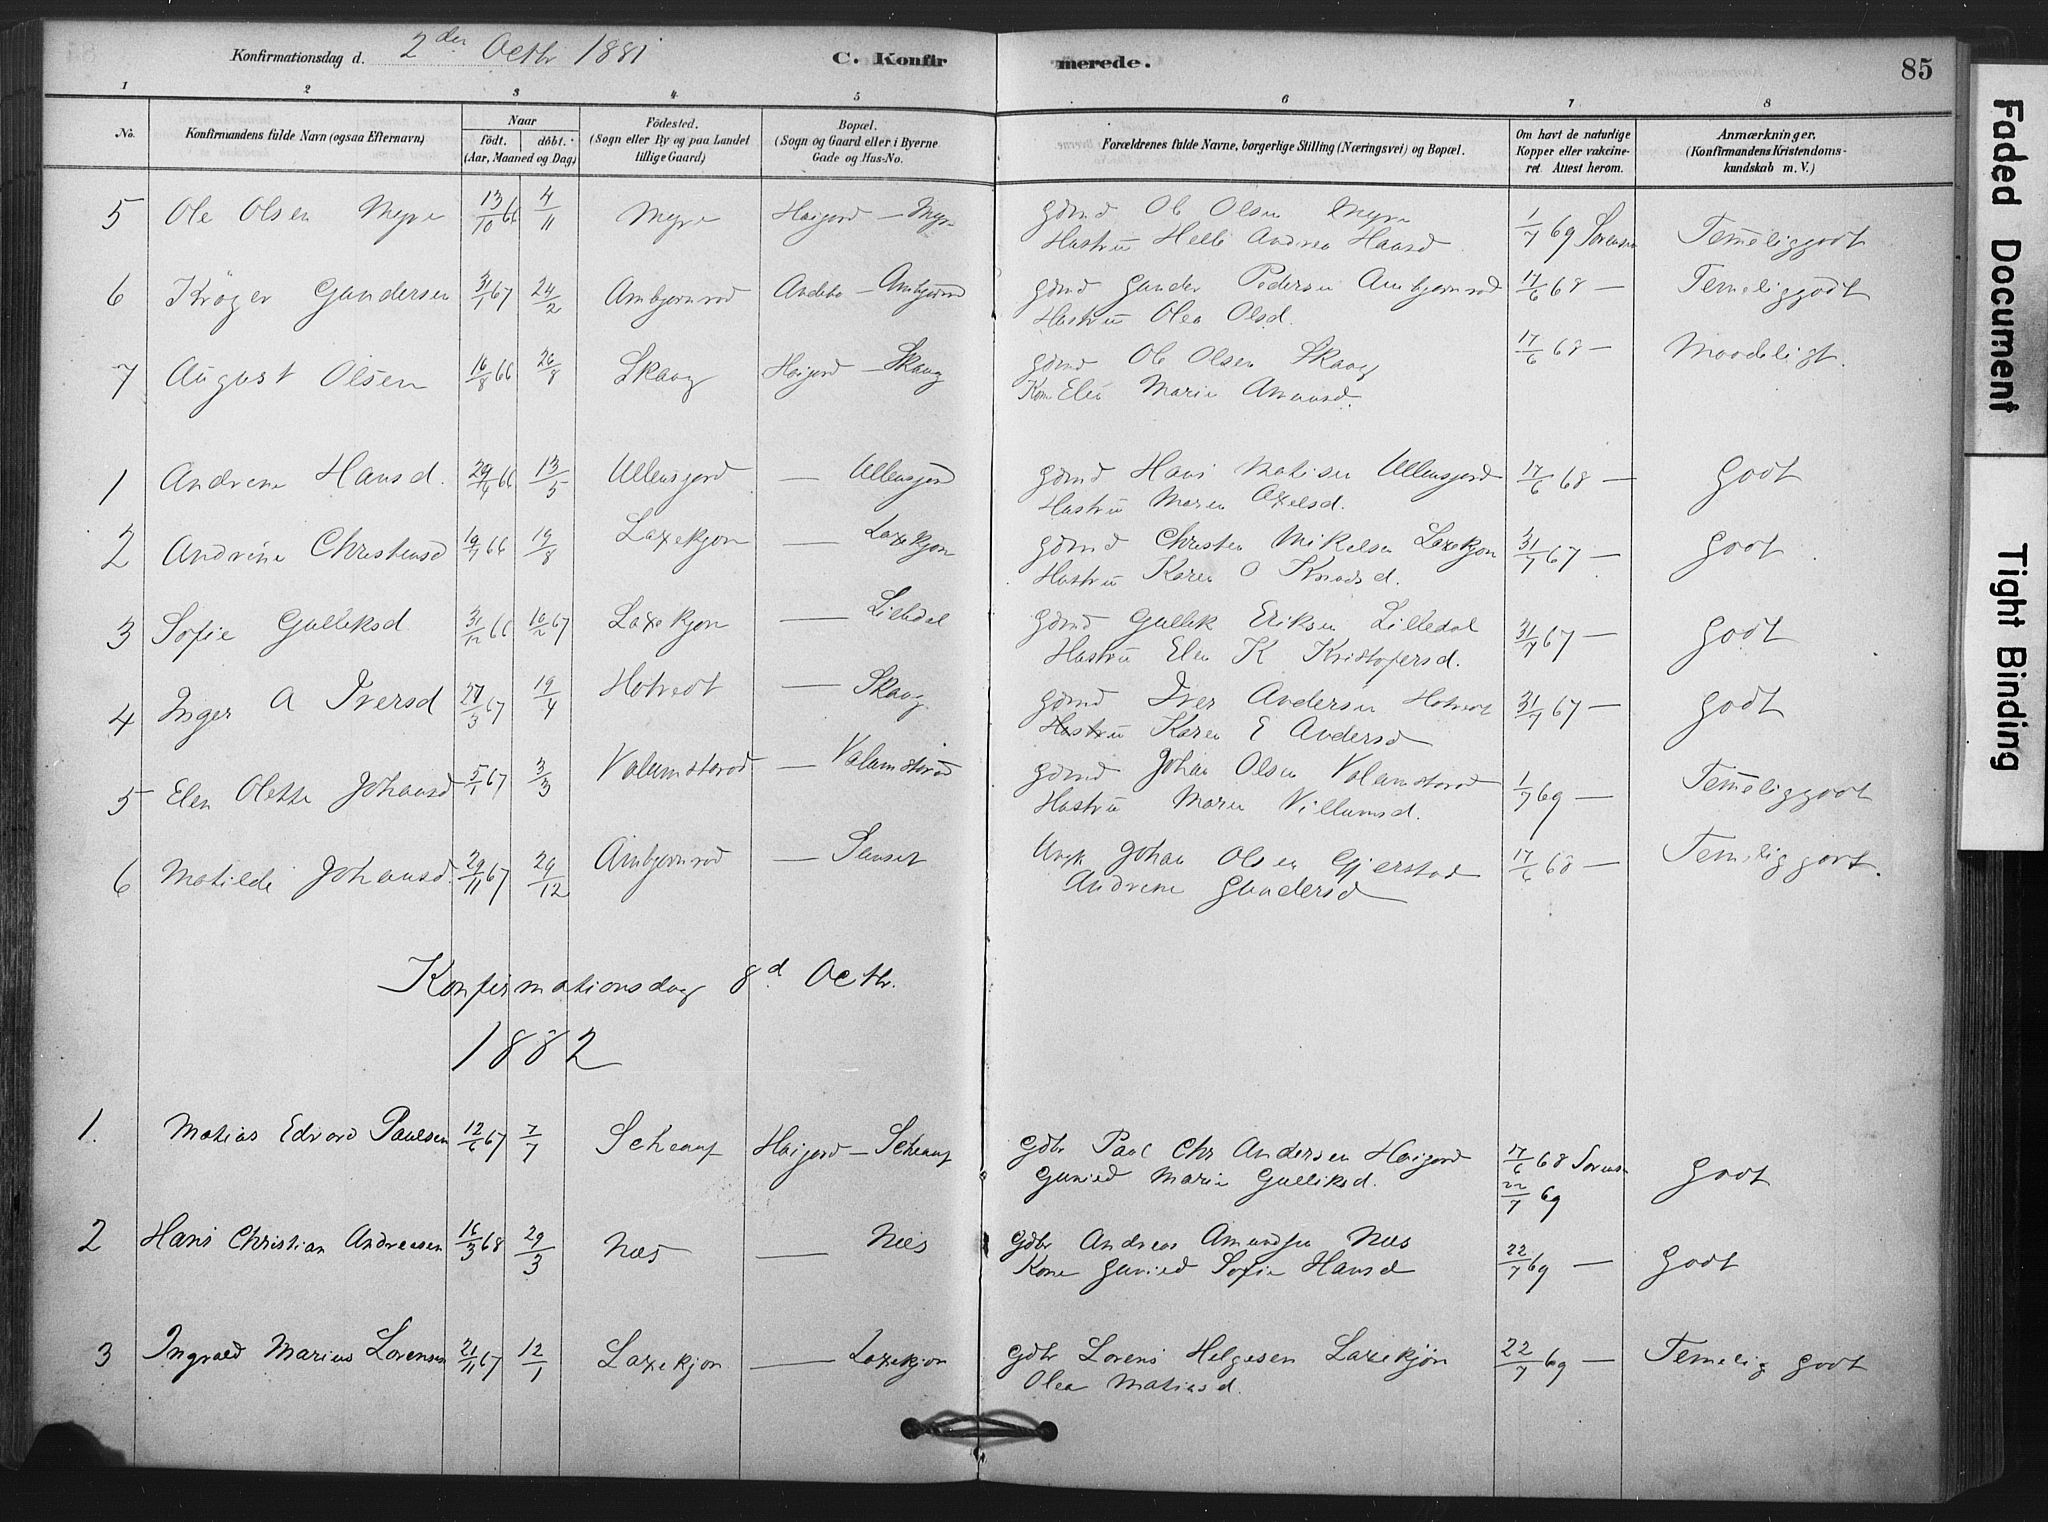 Konfirmationsdag d. 2den Octbr 1881 C. Konfirmerede. 85
1 2 3 4 5 6 7 8
No. Konfirmandens fulde Navn (ogsaa Efternavn) Naar födt. döbt. (Aar, Maaned og Dag) Födested. (Sogn eller By og paa Landet tillige Gaard) Bopæl. (Sogn og Gaard eller i Byerne Gade og Hus-No. Forældrenes fulde Navne, borgerlige Stilling (Næringsvei) og Bopæl. Om havt de naturlige Kopper eller vakcineret. Attest herom. Anmærkninger. (Konfirmandens Kristendomskundskab m. V.)
5 Ole Olsen Myre 13/10 66 4/11 Myre Høijord — Myre Gdmd Ole Olsen Myre 1/7 69 Sorensen Temeliggodt
Hustru Helle Andrea Hansd
6 Kröger Gundersen 31/1 67 24/2 Ambjornrod Andebo — Ambjornrod Gdmd Gunder Pedersen Ambjornrod 17/6 68 — Temeliggodt
Hustru Olea Olsd.
7 August Olsen 16/8 66 26/8 Skaug Høijord — Skaug Gdmd Ole Olsen Skaug 17/6 68 — Maadeligt.
Kone Elen Marie Amundsd.
1 Andrine Hansd. 29/4 66 13/5 Ullensjord — Ullensjord Gdmd Hans Matisen Ullensjord 17/6 68 — Godt
Hustru Maren Axelsd.
2 Andrine Christensd 19/7 66 19/8 Laxekjon — Laxekjon Gdmd Christen Mikelsen Laxekjon 31/7 67 — Godt
Hustru Karen O Knudsd.
3 Sofie Gulliksd 31/12 66 10/2 67 Laxekjon — Lilledal Gdmd Gullik Eriksen Lilledal 31/7 67 — Godt
Hustru Elen K Kristofersd.
4 Inger A Iversd 27/3 67 19/4 Hotvedt — Skaug Gdmd Iver Andersen Hotvedt 31/7 67 — Godt
Hustru Karen E Andersd
5 Elen Olette Johansd 5/1 67 3/3 Valumstorod — Valumstorod Gdmd Johan Olsen Valumstorod 1/7 69 — Temeliggodt
Hustru Maren Villumsd.
6 Matilde Johansd. 29/11 67 29/12 Ambjornrod — Sunset Ungk Johan Olsen Gjerstad 17/6 68 — Temeliggodt.
Andrine Gundersd
Konfirmationsdag 8d Octbr.
1882
1. Matias Edvard Paulsen 12/6 67 7/7 Scheauf Høijord — Scheauf Gdbr Paul Chr Andersen Høijord 17/6 68 Sorens- Godt
Gunied Marie Gulliksd. 22/7 69
2 Hans Christian Andreasen 16/3 68 29/3 Næs — Næs Gdbr Andreas Amundsen Næs 22/7 69 — Godt
Kone Gunied Sofie Hansd
3 Ingvald Marius Lorensen 21/11 67 12/1 Laxekjon — Laxekjon Gdbr Lorens Helgesen Laxekjön 22/7 69 — Temelig godt
Olea Matiasd.
Faded Document
Tight Binding